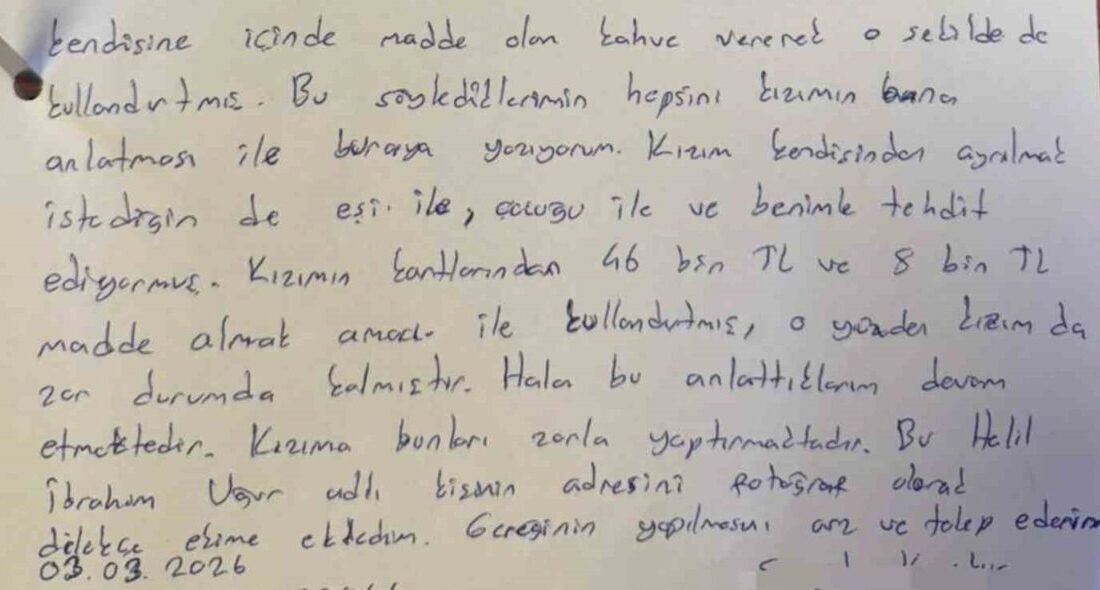 kendisine içinde madde olan kahve vererek o sekilde de
kullandırtmış. Bu söylediklerimin hepsini kızımın bana
anlatması ile buraya yazıyorum. Kızım kendisinden ayrılmak
istediğin de eşi ile, çocuğu ile ve benimle tehdit
ediyormuş. Kızımın kartlarından 46 bin TL ve 8 bin TL
madde almak amacı ile kullandırtmış, o yüzden kızım da
zor durumda kalmıştır. Hala bu anlattıklarım devam
etmektedir. Kızıma bunları zorla yaptırmaktadır. Bu Halil
İbrahim Uğur adlı kisinin adresini fotoğraf olarak
dilekçe ekime ekledim. Gereğinin yapılmasını arz ve talep ederim
03.03.2026